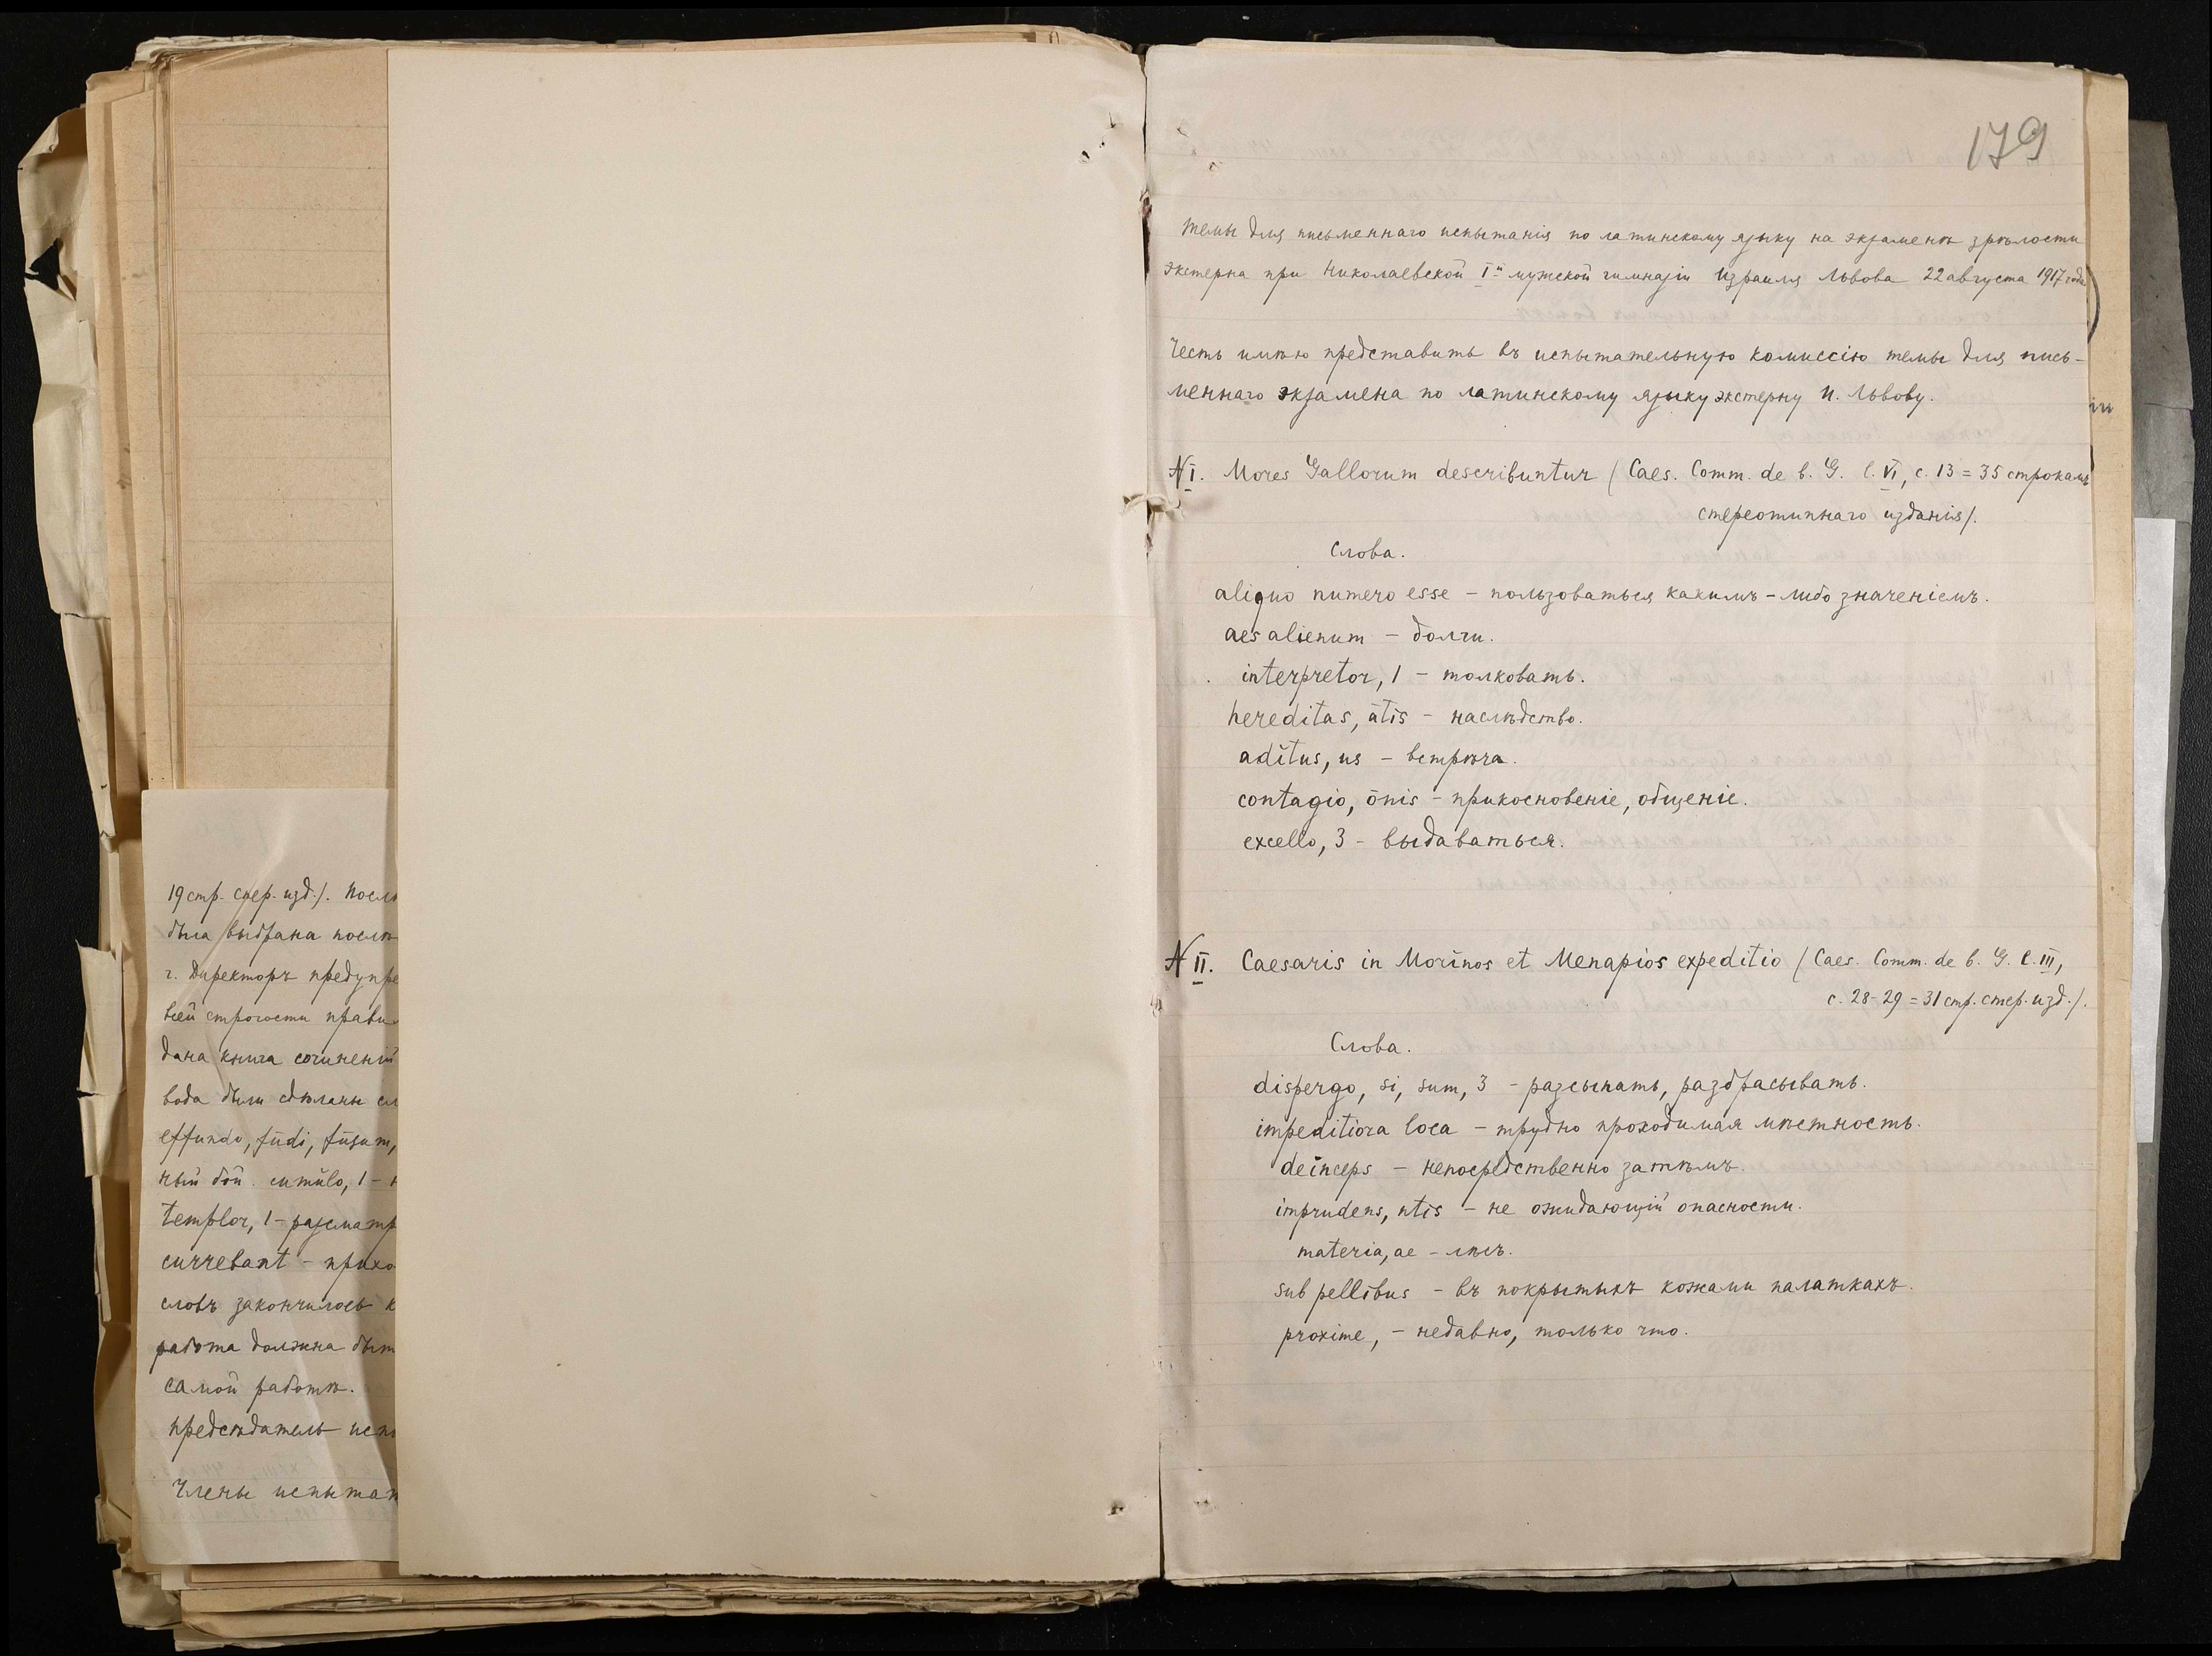 19 стр. стер. изд.). Послѣ
была выбрана послѣ
г. Директоръ предупре
всей строгости прави
дана книга сочиненій
вода были сдѣланы сл
effundo, fūdi, fūsum,
ный бой. cumŭlo, 1 –
templor, 1 – разсматр
currebant – прихо
словъ закончилось к
работа должна быт
самой работѣ.
Предсѣдатель исп
Члены испытан
179
Темы для письменнаго испытанія по латинскому языку на экзаменѣ зрѣлости
экстерна при Николаевской Iй мужской гимназіи Израиля Львова 22 августа 1917 года
Честь имѣю представить въ испытательную комиссію темы для пись-
меннаго экзамена по латинскому языку экстерну И. Львову.
№ I. Mores Gallorum describuntur (Caes. Comm. de b. G. l. VI, c. 13 = 35 строкамъ
стереотипнаго изданія).
Слова.
aliquo numero esse – пользоваться какимъ-либо значеніемъ.
aes alienum – долги.
interpretor, 1 – толковать.
hereditas, ātis – наслѣдство.
adĭtus, us – встрѣча.
contagio, ōnis – прикосновеніе, общеніе.
excello, 3 – выдаваться.
№ II. Caesaris in Morĭnos et Menapios expeditio (Caes. Comm. de b. G. l. III,
c. 28-29 = 31 стр. стер. изд.).
Слова.
dispergo, si, sum, 3 – разсыпать, разбрасывать.
impeditiora loca – трудно проходимая мѣстность.
deinceps – непосредственно затѣмъ.
imprudens, ntis – не ожидающій опасности.
materia, ae – лѣсъ.
sub pellĭbus – въ покрытыхъ кожами палаткахъ.
proxime, – недавно, только что.